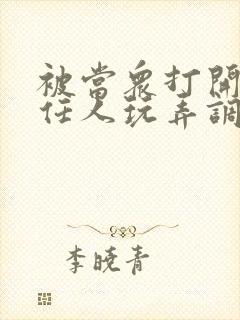 被當眾打開
任人玩弄調
李曉青